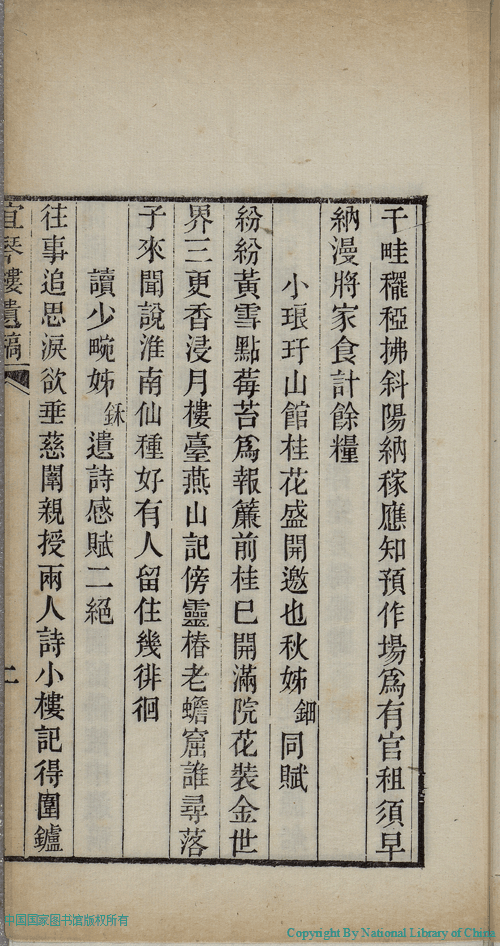 千畦䆉稏拂斜陽納稼應知預作場爲有官租須早
納漫將家食計餘糧
小琅玕山館桂花盛開邀也秋姊鈿同賦
紛紛黃雪點莓苔爲報簾前桂已開滿院花裝金世
界三更香浸月樓臺燕山記傍靈椿老蟾窟誰尋落
子來聞說淮南仙種好有人留住幾徘徊
讀少畹姊鉌遺詩感賦二絕
往事追思淚欲垂慈闈親授兩人詩小樓記得圍鑪
宜琴樓遺稿
二
中国国家图书馆版权所有
Copyright By National Library of China